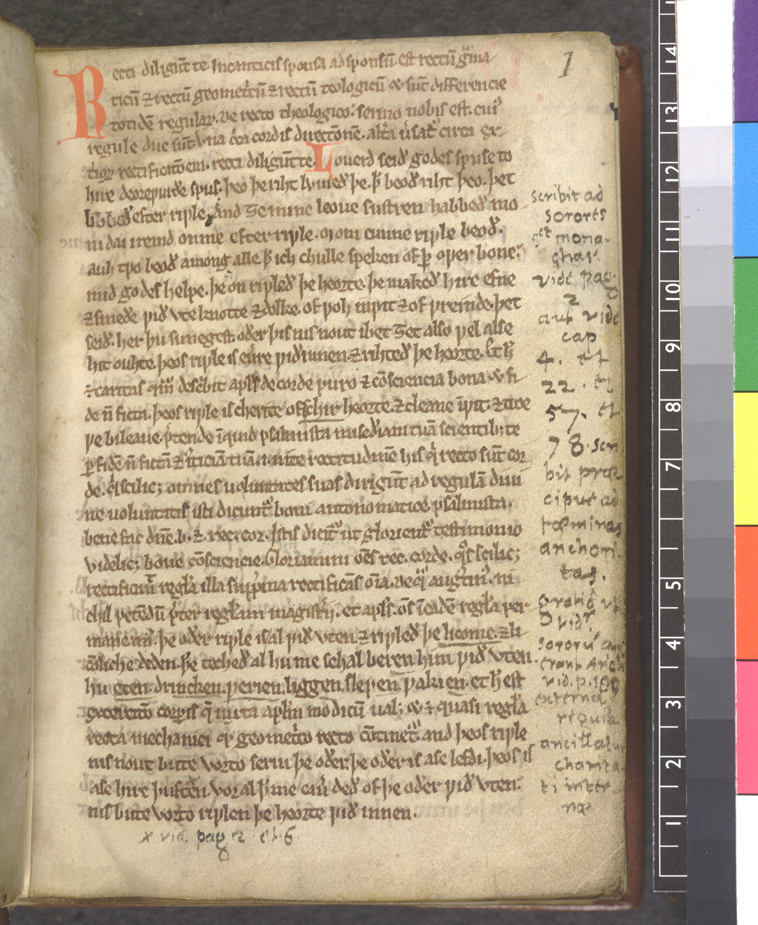 1
Recti diligūt te. In canticis sponsa ad sponsū. Est rectū grāma
ticū ⁊ rectū geometricū ⁊ rectū teologicū. ⁊ sūt differencie
totidē regularū. De recto theologico. sermo nobis est. cuius
regule due sūt. Vna circa cordis directionē. altera uersatur circa ex-
teriorū rectificationem. recti diligūt te. Louerd seið godes spuse to
hire deorewurðe spus. þeo þe riht luuieð þe. þeo beoð riht. þeo þet
libbeð efter riwle. And ȝe mine leoue sustren habbeð mo
ni dai iremd on me efter riwle. Moni cunne riwle beoð.
auh two beoð among alle. þ ich chulle speken of þ ower bone.
mid godes helpe. þe on riwleð þe heorte. þe makeð hire efne
⁊ smeðe wiðute knotte ⁊ dolke. of woh inwit ⁊ of wreinde. þet
seið. her þu sunegest. oðer þis nis nout ibet ȝet also wel ase
hit ouhte. þeos riwle is eure wiðinnen ⁊ rihteð þe heorte. Et hec
est caritas quam describit apostolus de corde puro ⁊ cōsciencia bona ⁊ fi
de nō ficta. þeos riwle is cherite of schir heorte ⁊ cleane inwit ⁊ treo
we bileaue. pretende inquid psalmista misericordiam tuā scientib; te
per fidē nō fictā ⁊ iusticiam tuā .i. uite rectitudinē his qui recto sūt cor
de. qui scilic; omnes uoluntates suas dirigūt ad regulā diui
ne voluntatis. isti dicunt boni antonomatice. psalmista.
benefac dñe. b. ⁊ rec. cor. Istis dicit ut glorient testimonio
videlic; bone cōsciencie. Gloriamini oēs rec. corde. quos scilic;
rectificauit regula illa suprema rectificans oīa. de qua augustin. ni
chil petendū preter regulam magistri. et apostolus. oēs ī eadē regula per
maneamus. þe oðer riwle is al wiðuten ⁊ riwleð þe licome ⁊ li
comliche deden. þe techeð al hu me schal beren him wiðuten.
hu eten. drincken. werien. liggen. slepen. wakien. et hec est
exercitio corporis que iuxta apostolum modicū ualet. ⁊ est quasi regula
recti mechanici quod geometrico recto cōtinetur. and þeos riwle
nis nout bute uorto serui þe oðer. þe oðer is ase lefdi. þeos is
ase hire þuften. vor al þ me euer deð of þe oðer wiðuten.
nis bute uorto riwlen þe heorte wiðinnen.
x vid. pag 2. et 6
scribit ad
sorores
et mona-
chas.
vide pag.
2
aut vide
cap
4. et
22. et
57. et
78. scri
bit præ
cipue ad
fœminas
anchori
tas.
vid.
vid. p. 189
externa
regula
ancillatur
charita
ti inter
næ